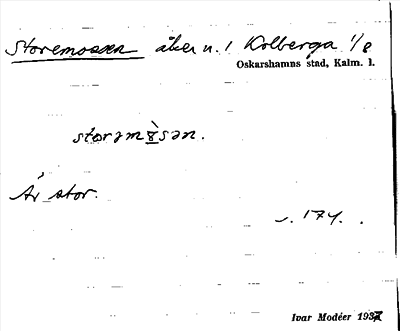 Storemossen åker n. 1 Kolberga 1/8
Oskarshamns stad, Kalm. l.
storəmɷ̀sən.
Är stor.
s. 174.
Ivar Modéer 1937